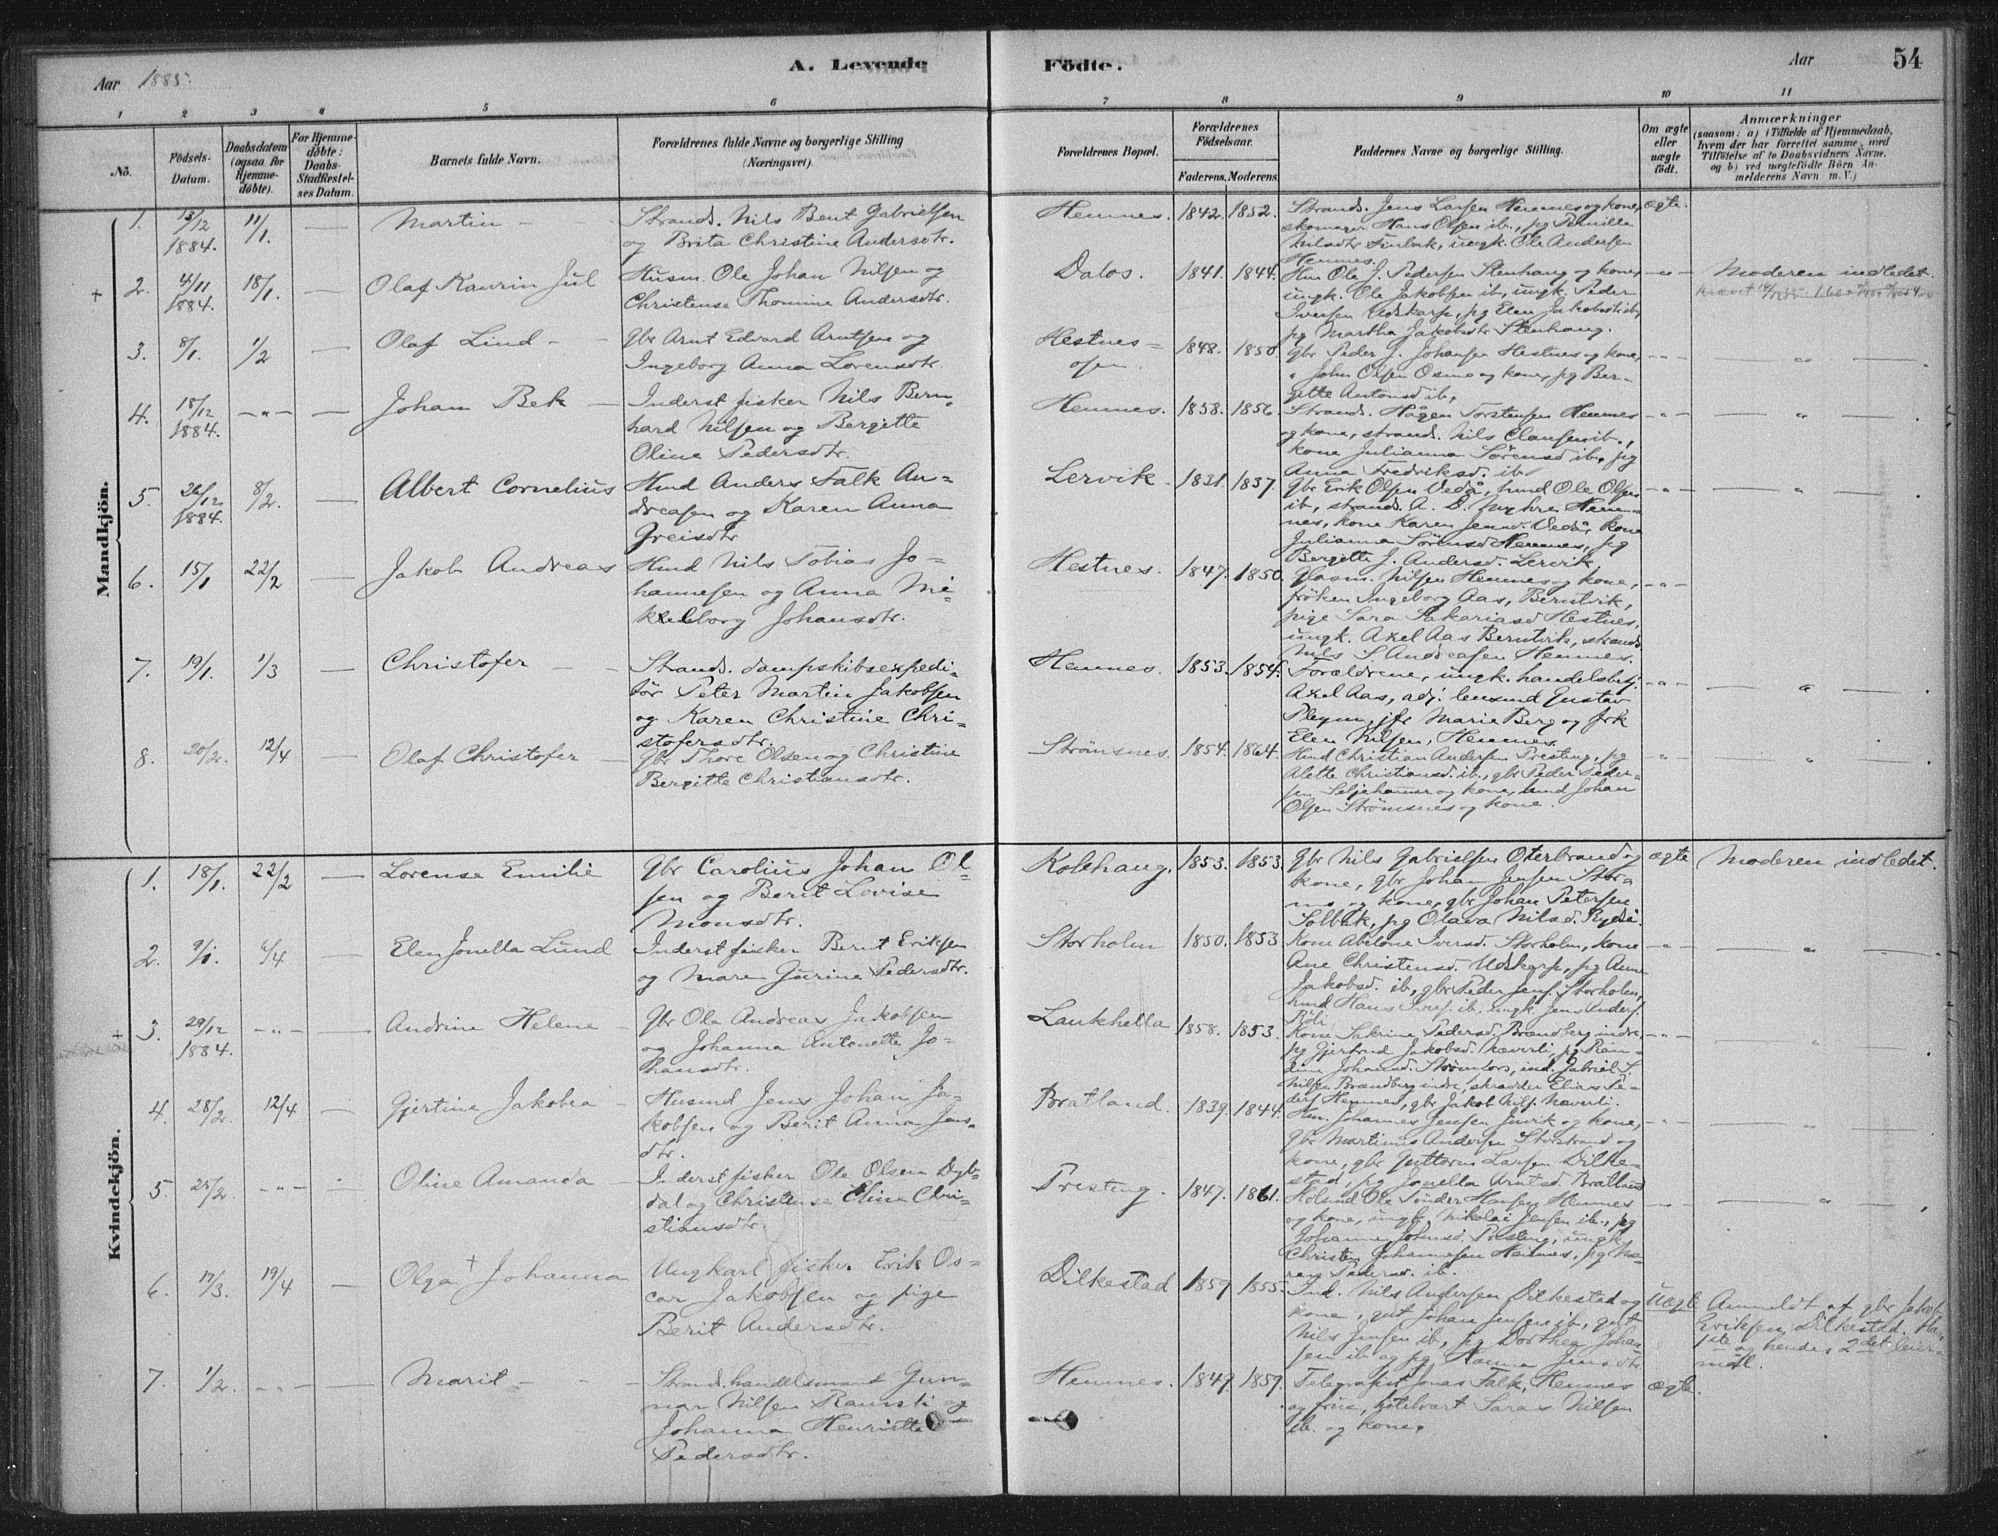 Aar 1885.
A. Levende Fødte.
Aar
54
1 2 3 4 5 6 7 8 9 10 11
No.
Fødsels-Datum.
Daabsdatum (ogsaa for Hjemmedøbte).
For Hjemmedøbte: Daabs-Stadfæstelses Datum.
Barnets fulde Navn.
Forældrenes fulde Navne og borgerlige Stilling (Næringsvei).
Forældrenes Bopæl.
Forældrenes Fødselsaar.
Faderens. Moderens.
Faddernes Navne og borgerlige Stilling.
Om ægte eller uægte født.
Anmærkninger
(saasom: a) i Tilfælde af Hjemmedaab,
hvem der har forrettet samme, med
Tilføielse af to Daabsvidners Navne,
og b) ved uægtefødte Børn An-
melderens Navn m. V.)
Mandkjön.
1. 13/12 1884. 11/1. — Martin
Strands. Nils Bent Gabrielsen
og Brita Christine Andersdtr.
Hemnes. 1842. 1852.
Strands. Jens Larsen Hemnes og kone,
skomager Hans Olsen ib., pg Pernille
Nilsdtr Finbak, ungk. Ole Andersen
Hemnes.
ægte.
2. 4/11 1884. 18/1. — Olaf Kaurin Jul
Husm. Ole Johan Nilsen og
Christense Thomine Andersdtr.
Dalos. 1841. 1844.
Hm Ole J. Pedersen Stenhaug og kone,
ungk. Ole Jakobsen ib, ungk. Peder
Iversen Udskarp, pg Elen Jakobsdtr ib,
pg Martha Jakobsdtr Stenhaug.
-"- Moderen indledet.
3. 8/1. 1/2 — Olaf Lind
Gbr Arnt Edvard Arntsen og
Ingeborg Anna Lorensdtr.
Hestnes=
osen. 1848. 1850.
Gbr Peder J. Johansen Hestnes og kone,
" John Olsen Osmo og kone, pg Ber-
gitte Antonsd ib.
-"- — " —
4. 18/12 1884. -"- — Johan Bek
Inderst fisker Nils Bern-
hard Nilsen og Bergitte
Oline Pedersdtr.
Hemnes. 1858. 1856.
Strands. Hågen Torstensen Hemnes
og kone, strands. Nils Clausen ib.,
kone Julianna Sørensd ib., pg
Anna Fredriksd. ib.
-"- — " —
5. 26/12 1884. 8/2. — Albert Cornelius
Hmd Anders Falk An-
dreasen og Karen Anna
Greisdtr
Lervik. 1831. 1837.
Gbr Erik Olsen Vedå, hmd Ole Olsen
ib, strands. A. D. Myhre Hem-
nes, kone Karen Jensd. Vedå, kone
Julianna Sørensd Hemnes, pg
Bergitte J. Andersd. Lervik.
-"- — " —
6. 15/1 22/2 — Jakob Andreas
Hmd Nils Tobias Jo-
hannesen og Anna Mi-
kkelborg Johansdtr.
Hestnes. 1847. 1850.
Glasm. Nilsen Hemnes og kone,
frøken Ingeborg Aas, Berntvik,
pige Sara Sakariasd Hestnes,
ungk. Axel Aas Berntvik, strands
Nils S. Andreasen Hemnes.
-"-
7. 19/1. 1/3 — Christofer
Strands. dampskibsexpedi-
tör Peter Martin Jakobsen
og Karen Christine Chri-
stofersdtr.
Hemnes. 1853. 1854.
Forældrene, ungk. handelsbetj.
Axel Aas, adj. lensmd Gustav
Pleym, jfr Marie Berg og frk
Elen Nilsen, Hemnes.
-"- — " —
8. 20/2. 12/4 — Olaf Christofer
Gbr Thore Olsen og Christine
Bergitte Christiansdtr.
Strømsnes. 1854. 1864.
Hmd Christian Andersen Presteng, pg
Alette Christiansd. ib., gbr Peder Peder-
sen Seljehammer og kone, hmd Johan
Olsen Strømsnes og kone.
-"- — " —
Kvindekjön.
1. 18/1. 22/2 — Lorense Emilie
Gbr Carolius Johan Ol-
sen og Berit Lovise
Monsdtr.
Kolehaug. 1853. 1853.
Gbr Nils Gabrielsen Oterbrand og
kone, gbr Johan Jensen Stor-
mo og kone, gbr Johan Petersen
Solbak, pg Olava Nilsd.
ægte Moderen indledet.
2. 9/1. 6/4 — Elen Jonella Lund
Inderst fisker Bernt Eriksen
og Maren Gurine Pedersdtr.
Storholm 1850. 1853
Kone Abelone Iversd. Storholm, kone
Ane Christensd. Udskarp, pg Anne
Jakobsd. ib, gbr Peder Jens. Storholm,
hmd Hans Ivers. ib, ungk. Jens Anders.
-"- — " —
3. 29/12 1884. -"- — Andrine Helene
Gbr Ole Andreas Jakobsen
og Johanna Antonette Jo-
hansdtr.
Laukhella 1858. 1853.
Kone Sakrine Pedersd. Brendberg indre,
pg Gjertrud Jakobsd. Næverli, pg Ran-
dine Johansd. Strømfors, ind. Gabriel S.
Nilsen Brendberg indre, skrædder Elias Pe-
ders Hemnes, gbr Jakob Nils. Næverli.
-"- — " —
4. 28/2. 12/4 — Gjertine Jakobea
Husmd Jens Johan Ja-
kobsen og Berit Anna Jens-
dtr.
Bratland. 1839. 1844.
Hm. Johannes Jensen Juvik og kone,
gbr Martinus Andersen Storstrand og
kone, gbr Guttorm Larsen Dilke-
stad, pg Jonella Arntsd. Bratland
-"- — " —
5. 25/2. -"- — Oline Amanda
Inderst fisker Ole Olsen Dyb-
dal og Christense Eline Chri-
stiansdtr.
Presteng. 1847. 1861.
Ole Tønder Hansen Hemnes
og kone, ungk. Nikolai Jensen ib., pg
Johanne Johnsd. Presteng, ungk.
Christen Johannesen Hemnes, pg Ma-
ren Pedersd. ib.
-"- — " —
6. 17/3. 19/4 — Olga + Johanna
Ungkarl fisker Erik Os-
car Jakobsen og pige
Berit Andersdtr.
Dilkestad 1859 1855.
Ind. Nils Andersen Dilkestad og
kone, gut Johan Jensen ib, gut
Nils Jensen ib, pg Dorthea Johan-
sen ib og pg Hanna Jensdtr
Uægte
Anmeldt af gbr Jakob
Eriksen Dilkestad. Hans
1ste og hendes 2det leier-
mål.
7. 1/2. -"- — Marit
Strands. handelsmand Gun-
nar Nilsen Ramsli og
Johanna Henriette
Pedersdtr.
Hemnes. 1849. 1859.
Telegrafist Jonas Falk, Hemnes
og frue, hotelvært Saras Nilsen
ib. og kone.
ægte.